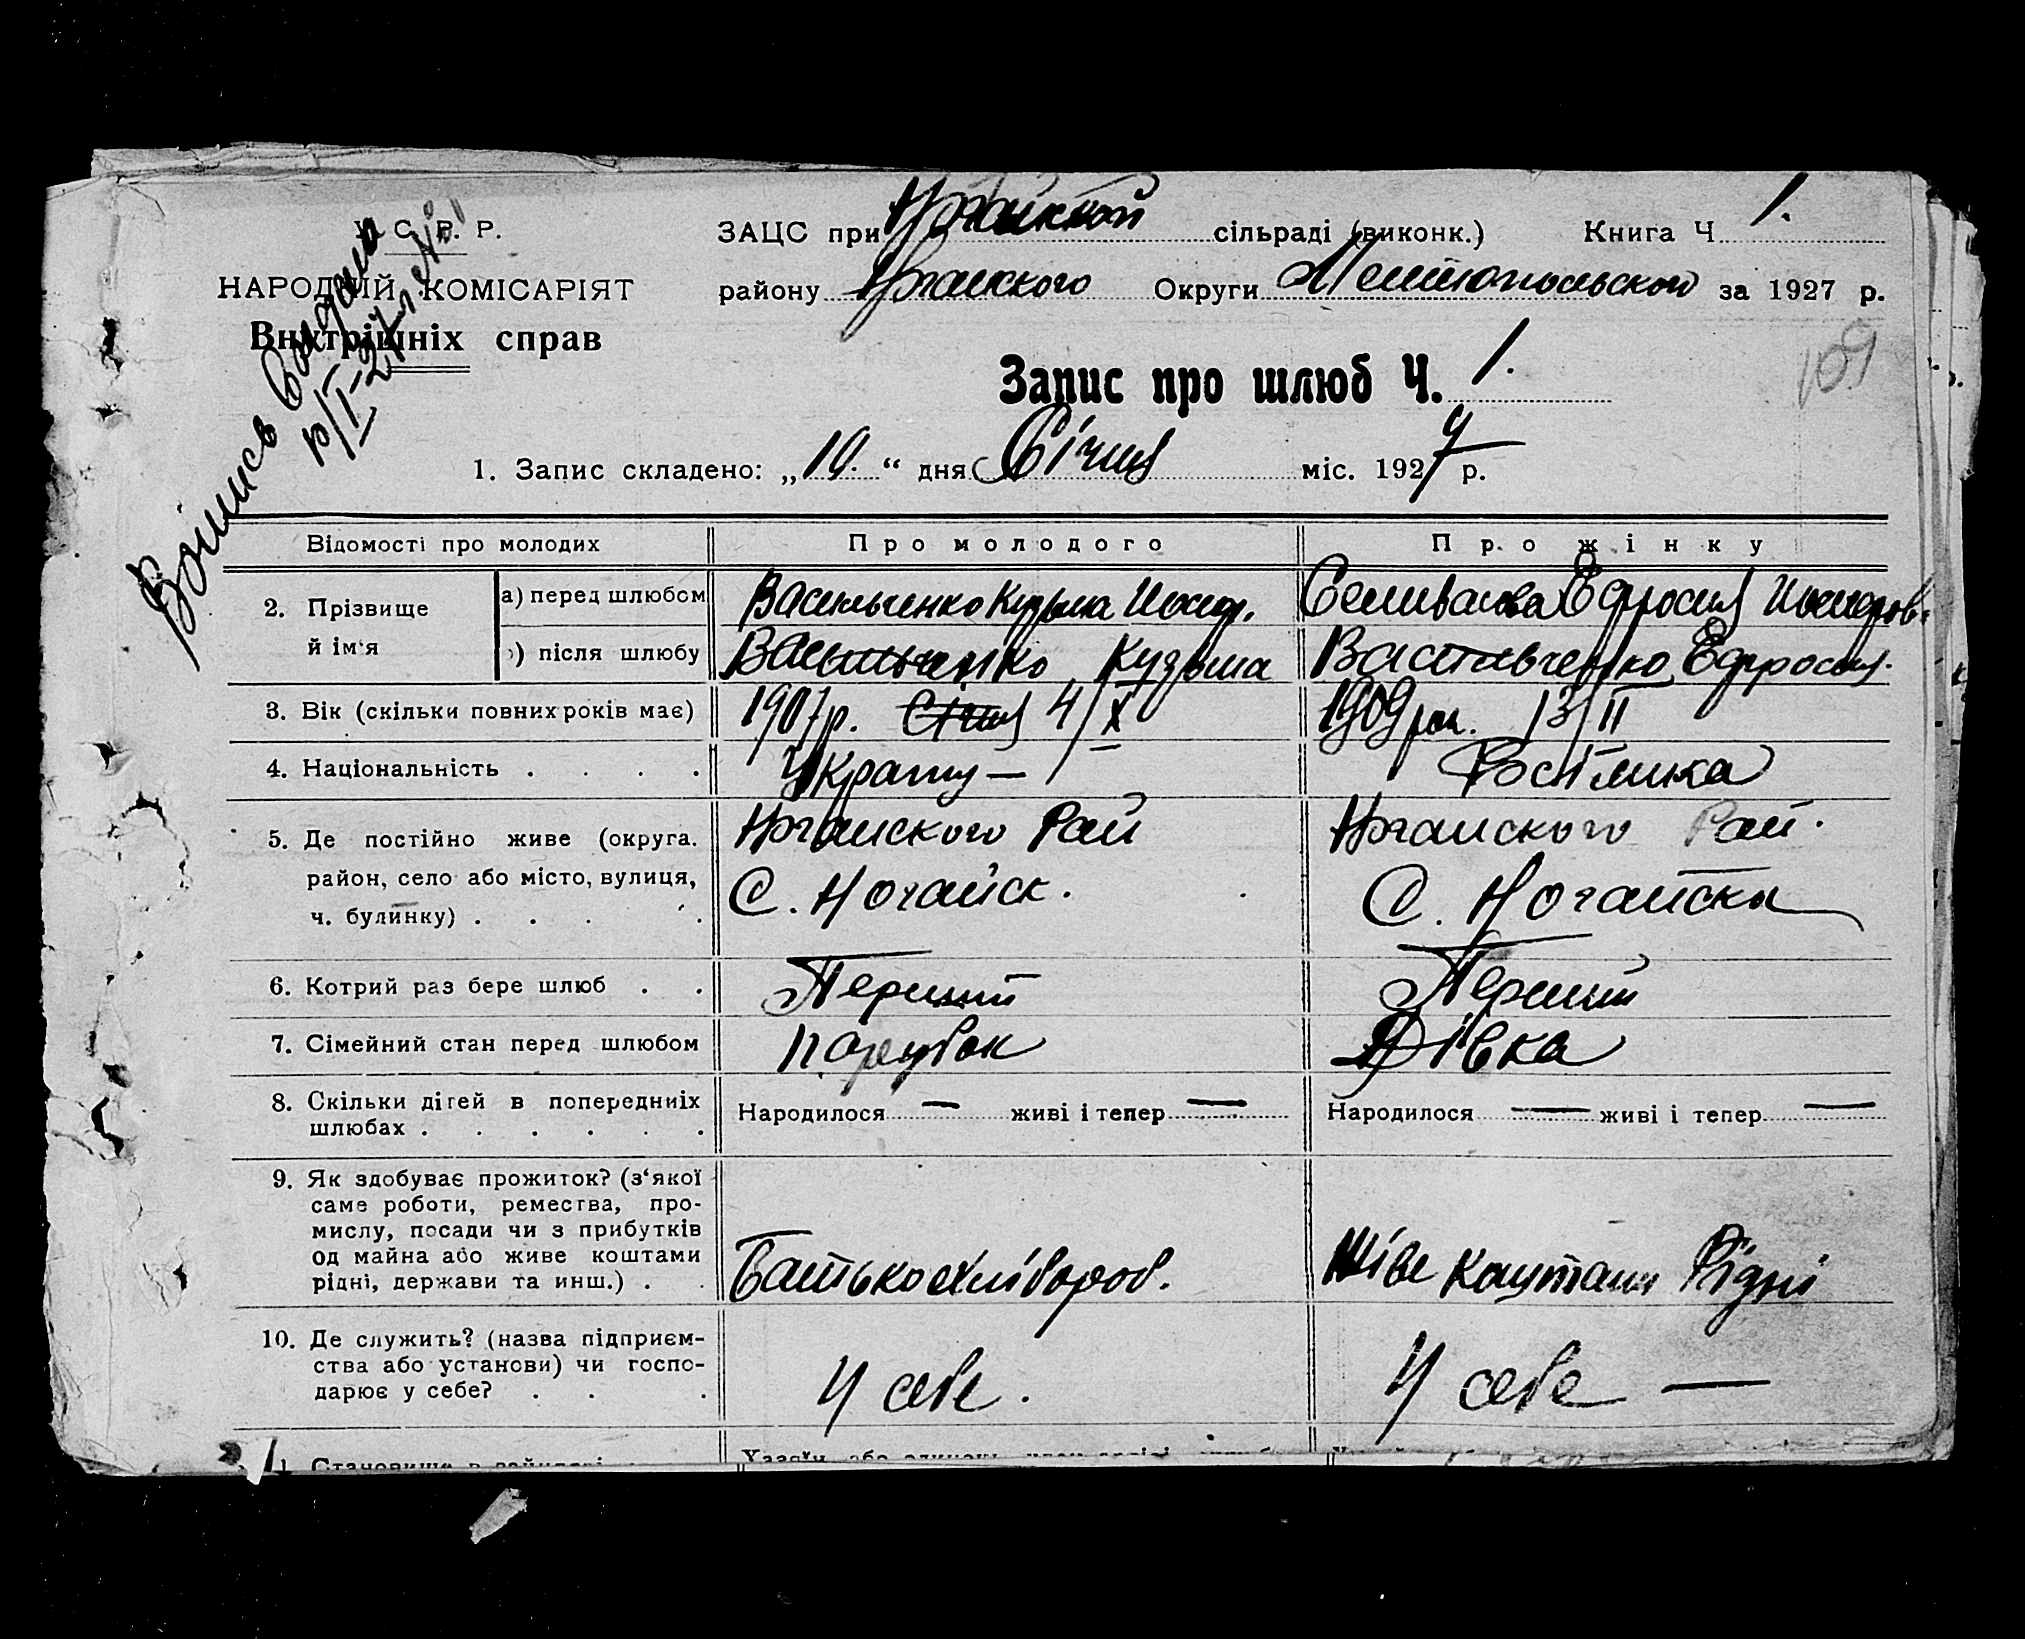 У. С. Р. Р.
НАРОДНИЙ КОМІСАРІЯТ
Внутрішніх справ
Випись видана
10/I-27 р. № 1
ЗАЦС при Ногайской сільраді (виконк.) Книга Ч 1.
району Ногайского Округи Мелітопольского за 1927 р.
109
Запис про шлюб Ч. 1.
1. Запис складено: „10.“ дня Січня міс. 1927 р.
Відомості про молодих Про молодого Про жінку
2. Прізвище й ім'я
а) перед шлюбом Васильченко Кузьма Иосиф. Селиванова Ефросия Иосифов.
б) після шлюбу Васильченко Кузьма Васильченко Ефросия.
3. Вік (скільки повних років має) 1907 р. Січня 4/X 1909 рок. 13/II
4. Національність . . . . Украинц — Росіянка
5. Де постійно живе (округа. Ногаиского Рай Ногаиского Рай.
район, село або місто, вулиця, С. Ногайск. С. Ногайска
ч. будинку) . . . .
6. Котрий раз бере шлюб . . Перший Перший
7. Сімейний стан перед шлюбом парубок Дівка
8. Скільки дітей в попередниіх Народилося — живі і тепер — Народилося — живі і тепер —
шлюбах . . . . . .
9. Як здобуває прожиток? (з'якої
саме роботи, ремества, про-
мислу, посади чи з прибутків
од майна або живе коштами
рідні, держави та инш.) . . Батько хлібороб. Живе коштами Рідні
10. Де служить? (назва підприєм-
ства або установи) чи госпо-
дарює у себе? . . . У себе. У себе —